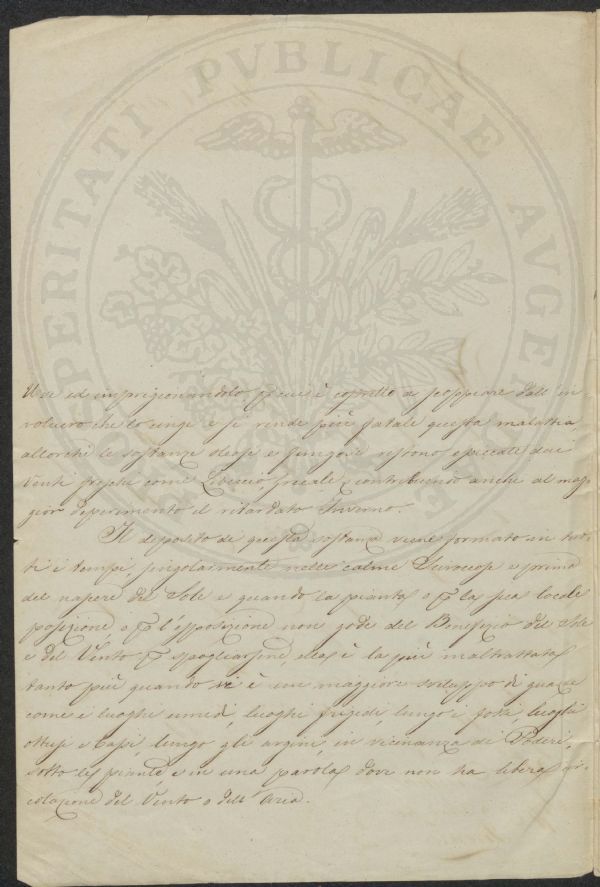 PROSPERITATI PVBLICAE AVGENDAE
ed imprigionandolo, per cui è costretto a scoppiare dall' in
voluero che lo unge e si rende più fatale questa malattia
allorchè le sostanze oleose e fungose restono spiccate dai
Venti freschi come Libeccio grecale, contribuendo anche al mag
gior deperimento il ritardato Inverno.
Il deposito di questa sostanza viene formato in tut
ti i tempi, singolarmente nelle calme e prima
del nascere del Sole e quando la pianta o p la sua locale
posizione, o p l'esposizione non gode del Benefizio del Sole
e del Vento p spogliarsene, ella è la più maltrattata
tanto più quando vi è un maggiore sviluppo di guazze
come i luoghi umidi, luoghi frigidi, lungo i fossi luoghi
ottusi e bassi, lungo gli argini, in vicinanza di Poderi,
sotto le piante e in una parola dove non ha libera cir
colazione del Vento o dell' Aria.